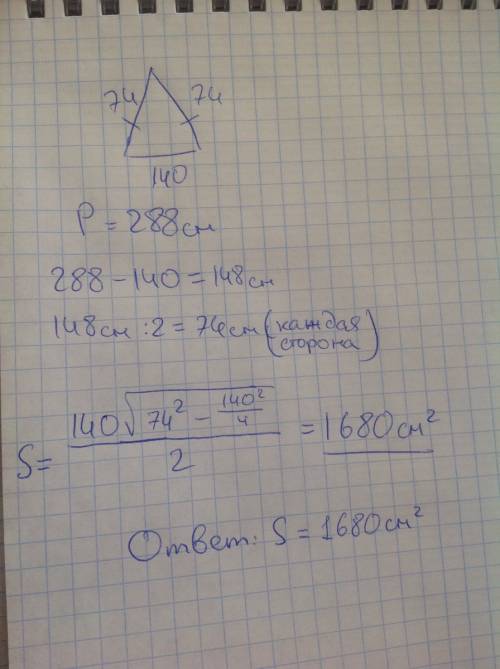 74 74
140
P = 288см
288 - 140 = 148см
148см : 2 = 74см (каждая
сторона)
S = 140√(74² - 140²/4) / 2 = 1680см²
Ответ: S = 1680см²